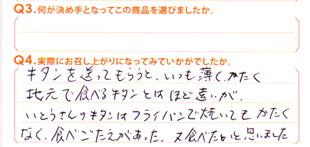 Q3.何が決め手となってこの商品を選びましたか。
Q4.実際にお召し上がりになってみていかがでしたか。
牛タンを送ってもらうと、いつも薄く、かたく
地元で食べる牛タンとはほど遠いが、
いとうさんの牛タンはフライパンで焼いてもかたく
なく、食べごたえがあった。又食べたいと思いました